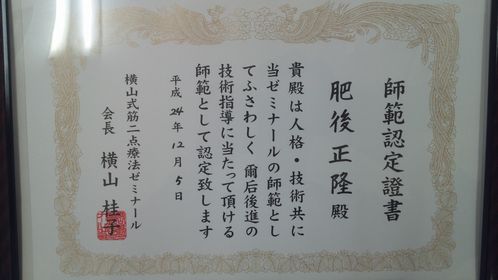 師範認定證書
肥後正隆殿
貴殿は人格・技術共に
当ゼミナールの師範とし
てふさわしく爾后後進の
技術指導に当たって頂ける
師範として認定致します
平成24年12月5日
横山式筋二点療法ゼミナール
会長 横山桂子